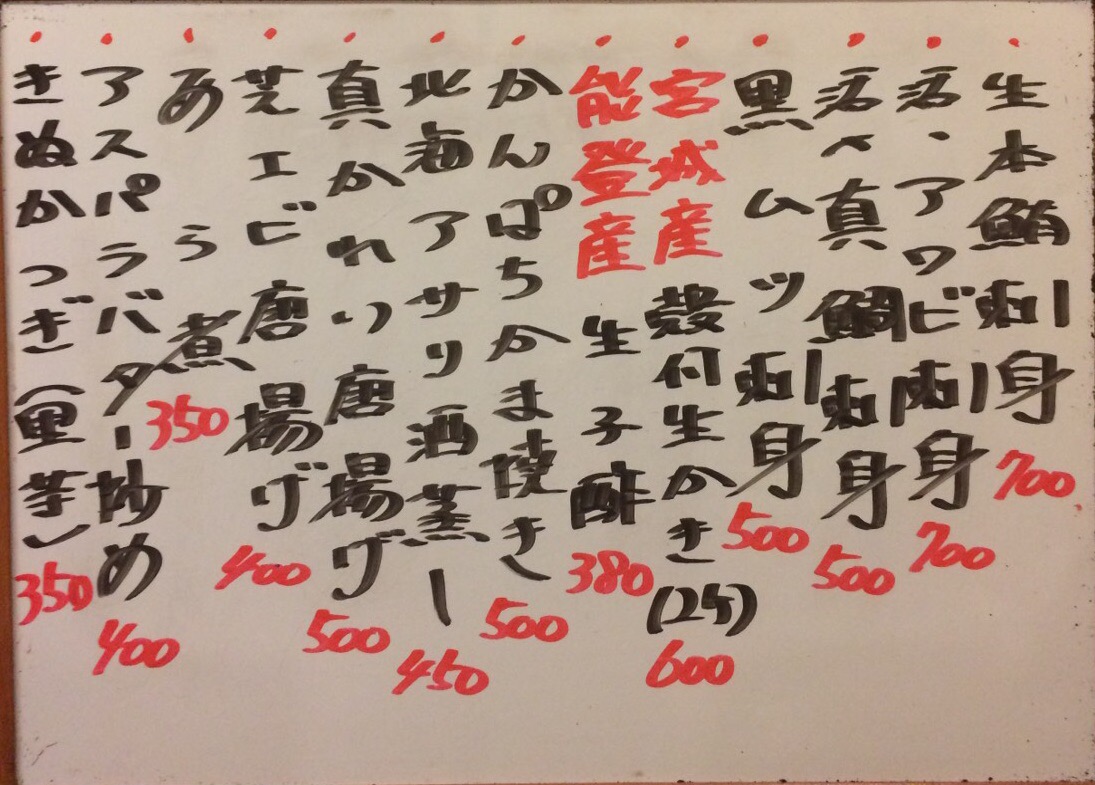 生本鮪刺身 700
活、アワビ刺身 700
活〆真鯛刺身 500
黒ムツ刺身 500
宮城産 殻付生かき(2ケ) 600
能登産 生子酢 380
かんぱちかま焼き 500
北海アサリ酒蒸し 450
真かれい唐揚げ 500
芝エビ唐揚げ 400
あら煮 350
アスパラバター炒め 400
きぬかつぎ(里芋) 350